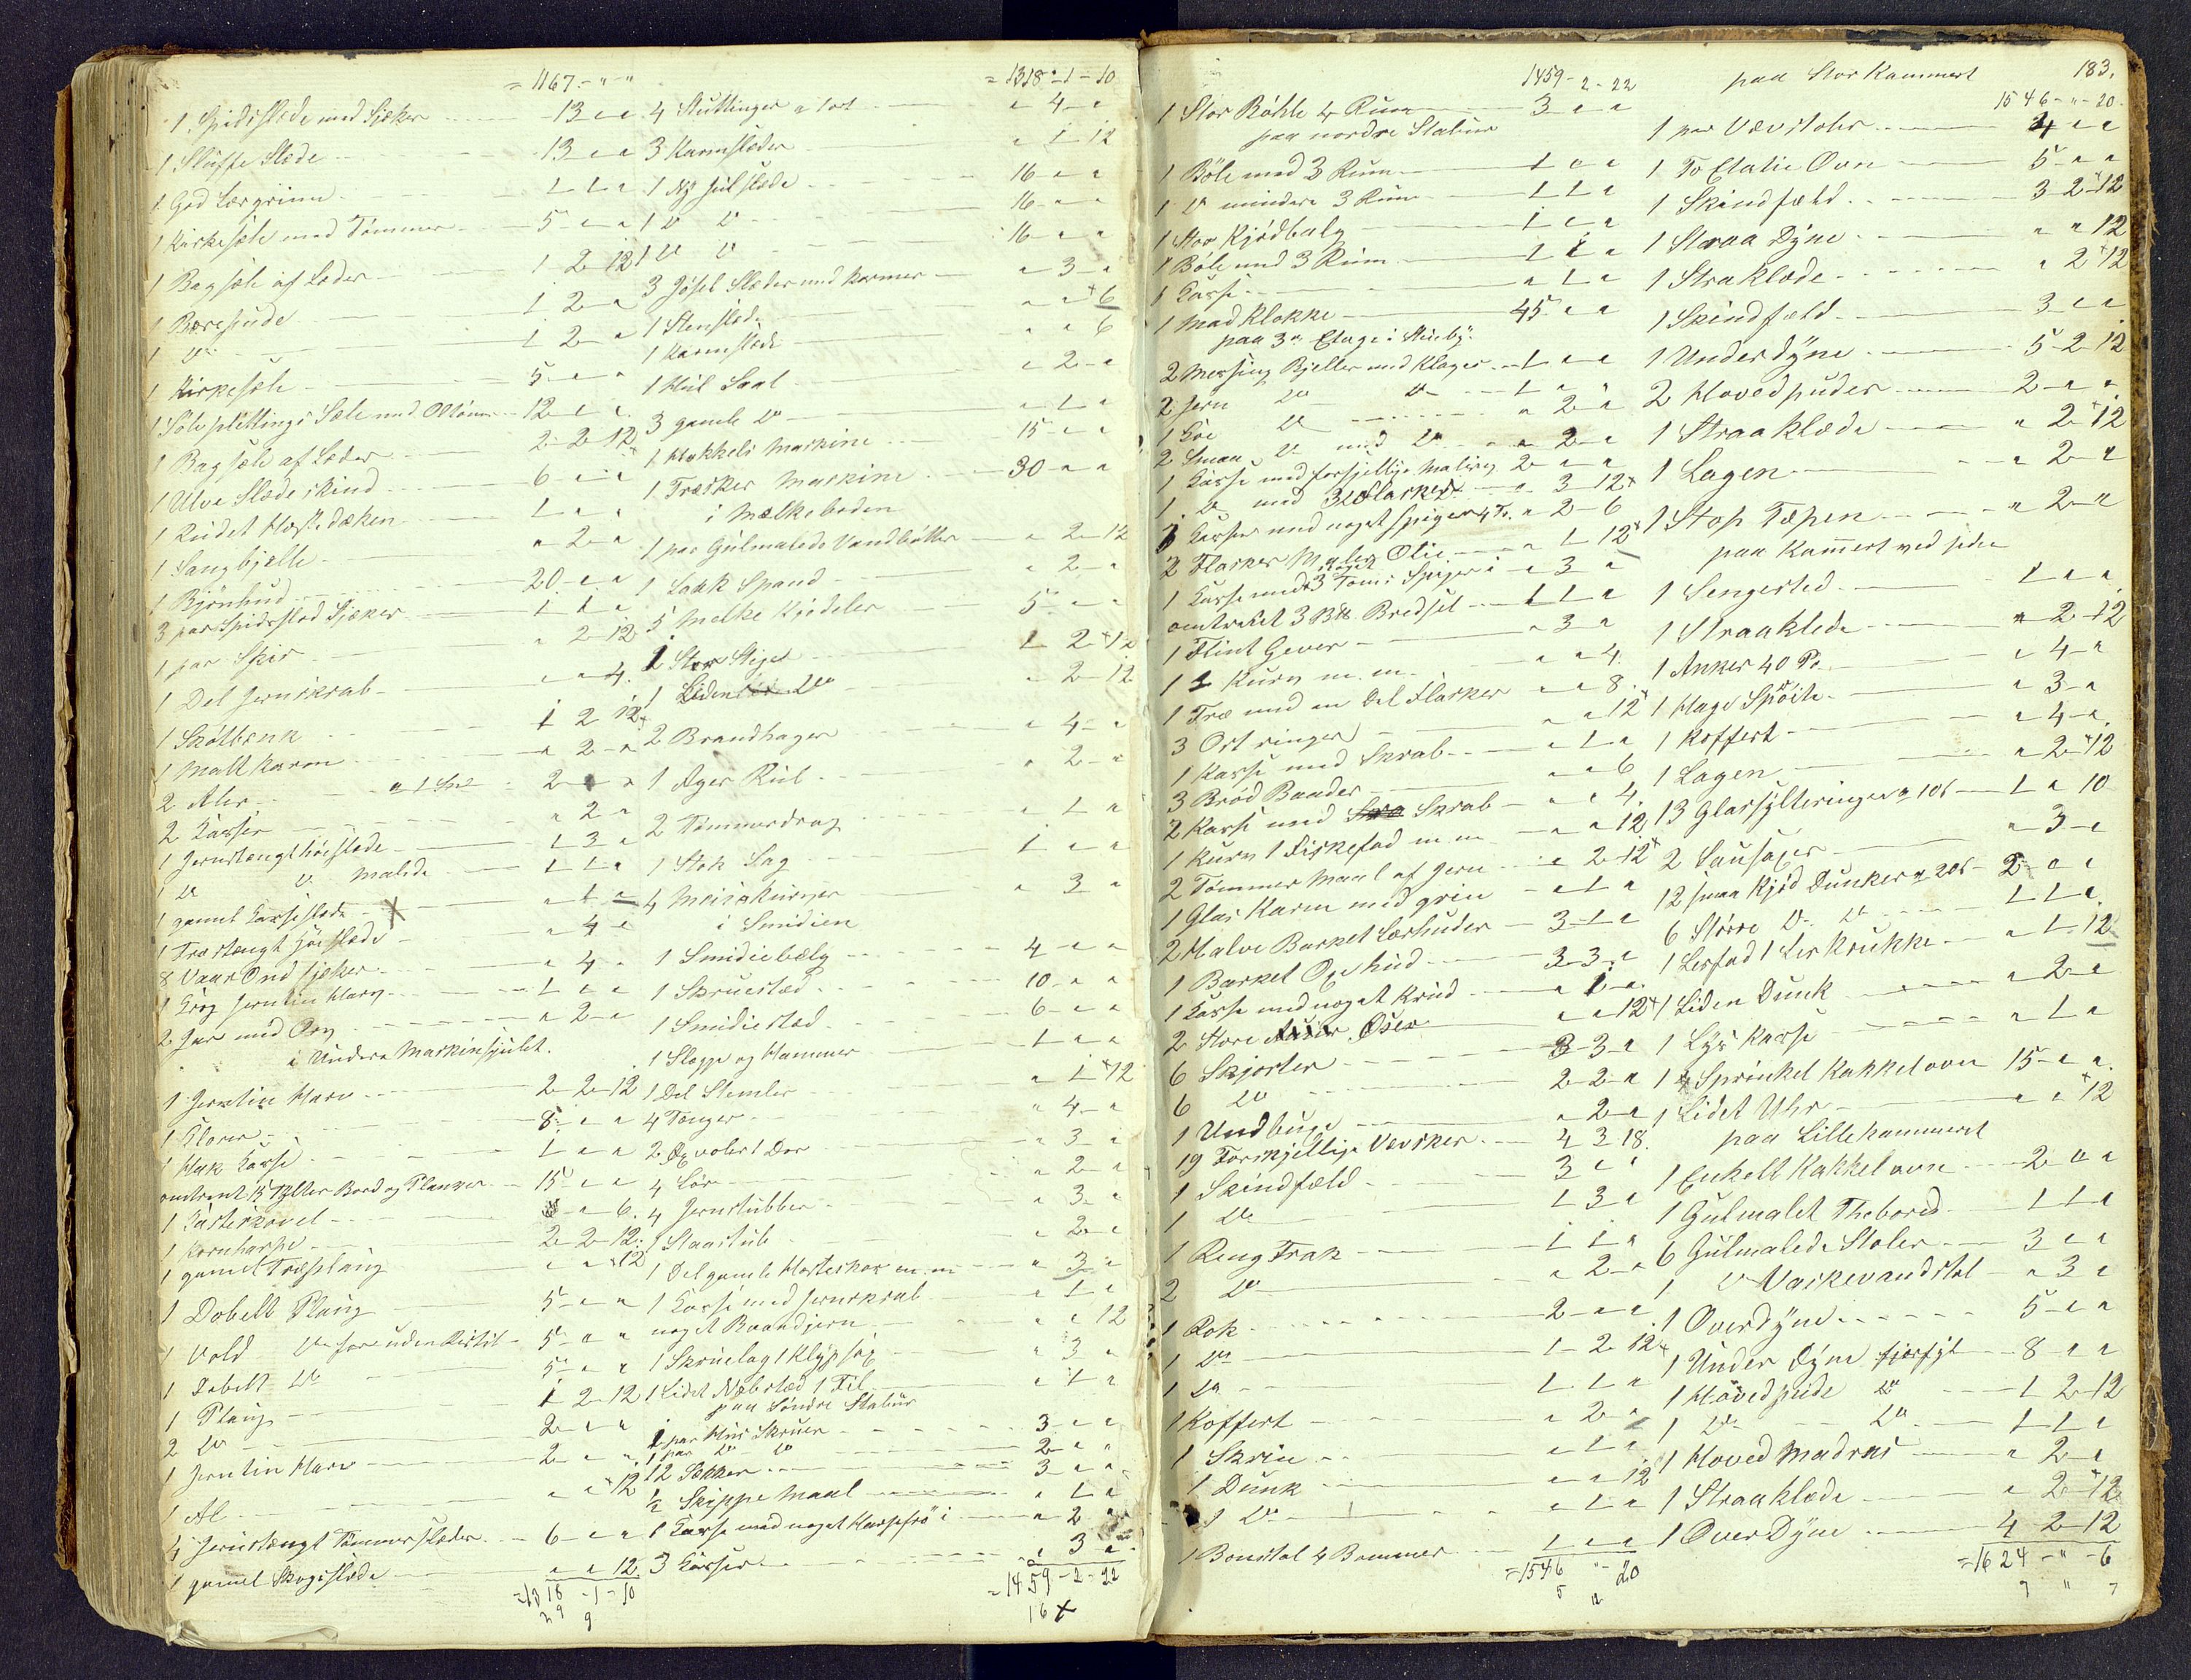 = 1167 - " - "
1 Spidsslæde med Skjæker 13 " "
1 Sluffe Slæde 13 " "
1 God Lærgrime 1 1 "
1 Kirkesæle med Tømmer 5 " "
1 Bagsæle af Læder 1 2 12
1 Bærepude 1 2 "
1 Do 1 2 "
1 Kirkesæle 5 " "
1 Sølvplettings Sæle med 12 " "
1 Bagsæle af Læder 2 2 12
1 Ulve Slædeskind 6 " "
1 Hestedækken 1 " "
1 Sangbjelle " 2 "
1 Bjørnhud 20 " "
3 par Spidsslæd Skjæker 1 1 "
1 par Skier " 2 12
1 Del Jernskrab " " 4
1 Skotbænk 1 2 12
1 Malt Karm " 2 "
2 Aker 2 " "
2 Kasser " 2 "
1 Jernstængt Høeslæde 1 3 "
1 Do Do malede 1 1 "
1 gamel Kasseslæde " 1 "
1 Træstængt Høeslæde " 4 "
8 Vaar Ond Skjæker " 4 "
1 Krog Jerntin Harv 1 " "
2 Jær med Dræg " 2 "
i Undere Maskinskjulet.
1 Jerntin Harv 2 2 12
1 Klover 8 " "
1 Hak Kasse 1 " "
omtrent 15 Tylter Bord og Planker 15 " "
1 Kasteskovel " " 6
1 Kornharpe 2 2 12
1 gamel Træplaug " " 12
1 Dobelt Plaug 5 " "
1 Vold Do foruden Ristel 5 " "
1 Dobelt Do 5 " "
1 Plaug 1 2 12
2 Do 2 " "
1 Jerntin Harv 2 " "
1 Al " " 12
4 Jernstængt Tømmerslæder 6 " "
1 gamel Skogsslæde " " 12
= 1318 - 1 - 10
= 1318 - 1 - 10
4 Stuttinger a 1ort " 4 "
3 Karmslæder " 1 12
1 Ny Hjulslæde 16 " "
1 D D 16 " "
1 Do D 16 " "
3 Gjødsel Slæder med Karmer " 3 "
1 Stenslæde " " 6
1 Karmslæde " " 6
1 Hjul Saal " 2 "
3 gamle Do " 1 "
1 Hakkels Maskine 15 " "
1 Træsker Maskine 30 " "
i Melkeboden
1 par Gulmalede Vandbøtter " 2 12
1 Laak Spand " 2 "
5 Melke Kjødeler 5 " "
1 Stor Stige 1 2 12
1 Liden Do " 2 12
2 Brandhager " 4 "
1 Ager Rul " 2 "
2 Tømmerdrag " 1 "
1 Stok Sag 1 " "
4 Meisekurver " 3 "
i Smidien
1 Smidiebælg 4 " "
1 Skruestæd 10 " "
1 Smidiestæd 6 " "
1 Slægge og Hammer 1 " "
1 Del Stemler " 1 12
4 Tænger " 4 "
2 1 Dor " 3 "
4 Lør " 2 "
4 Jernstubber " 3 "
1 Staastub " 2 "
1 Del gamle Hesteskor m.m " 3 "
1 Kasse med Jernskrab " 1 "
noget Baandjern " " 12
1 Skruelag 1 Klypsag " 3 "
1 Lidet Næbstæd 1 Fil " 1 "
paa Søndre Stabur
1 par Hus Skruer 3 " "
1 par Do Do 2 " "
12 Sekker 3 " "
1/2 Skippe Maal " 1 "
1 Kasse med noget Harpefrø i " 2 "
3 Kasser " 3 "
= 1459 - 2 - 22
16 +
1459 - 2 - 22
1 Stor Bøhle 4 Rum 3 " "
paa nordre Stabur
1 Bøle med 3 Rum 1 " "
1 Do mindere 3 Rum 1 1 "
1 Stor Kjødbalg 1 " "
1 Bøle med 3 Rum 1 1 "
1 Kasse " 1 "
1 Mad Klokke 45 " "
paa 3de Etage i
2 Messing Bjeller med Klaper 1 " "
2 Jern Do Do 1 " "
1 Koe Do " 2 "
2 Smaa Do med Do " 2 "
1 Kasse med forskjellige Maling 2 " "
1 Do med 32 Flasker " 3 12
1 Kasser med noget Spiger 4 T. " 2 6
2 Flasker Maler Olie " 1 12
1 Kasse med noget 3 Toms Spiger i " 3 "
omtrent 3 Bredsel 1 1 "
1 Flint Gever " 3 "
1 1 Kurv m.m. " " 4
1 Træ med en Del Flasker " " 8
3 Ost ringer " " 12
1 Kasse med Skrab " 1 "
3 Brød Baader " " 6
2 Kasse med Skrab " " 4
1 Kurv 1 Fiskefad m m " " 12
2 Tømmer Maal af Jern " 2 12
1 Glas Karm med grin " 1 "
2 Halve Barket Lærhuder 3 1 "
1 Barket Oxehud 3 3 "
1 Kasse med noget Krud " 1 "
2 Store Øser " " 12
6 Skjorter 3 3 "
6 Do 2 2 "
1 Undbuxe " 2 "
19 Forskjellige Vævsker 4 3 18
1 Skindfæld 3 " "
1 Do 1 3 "
1 Reng Frak 1 1 "
2 Do " 2 "
1 Rok 2 " "
1 Do 1 2 12
1 Do 1 1 "
1 Koffert " 2 "
1 Skrin " 1 "
1 Dunk " " 12
1 Do " 1 "
1 Bomstol 4 Bommer 1 " "
= 1546 " 20
paa Stor Kammert
183.
1546 - " - 20
1 par Vævstoler 4 " "
1 To Etatie Ovn 5 " "
1 Skindfæld 3 2 12
1 Straa Dyne " " 12
1 Straklæde " 2 12
1 Skindfæld 3 " "
1 Underdyne 5 2 12
2 Hovedpuder 2 " "
1 Straaklæde " 2 12
1 Lagen " 2 "
1 Stop Tæpen " 2 "
paa Kammert ved siden
1 Sengested 1 " "
1 Straaklæde " 2 12
1 Anker 40 P. " 4 "
1 Hage Sprøite " 3 "
1 Koffert " 4 "
1 Lagen " 2 12
13 Glassylteringer a 10s 1 " 10
2 Sausøser " 3 "
12 smaa Kjød Dunker a 20s 2 " "
6 Større Do Do 1 1 "
1 Lerfad 1 Ler Krukke " 1 12
1 Liden Dunk " 2 "
1 Lys Kasse " 1 "
1 Sprinket Kakkelovn 15 " "
1 Lidet Uhr " " 12
paa Lillekammeret
1 Enkelt Kakkelovn 2 " "
1 Gulmalet Thebord 1 1 "
6 Gulmalede Stoler 3 " "
1 Do Vaskevandstol " 3 "
1 Overdyne 5 " "
1 Under Dyne 8 " "
1 Hovedpude Do 1 2 12
1 Do Do 1 1 "
1 Hoved Madras " 2 "
1 Straaklæde " 2 12
1 Over Dyne 4 2 12
= 1624 - " - 6
7 " 7